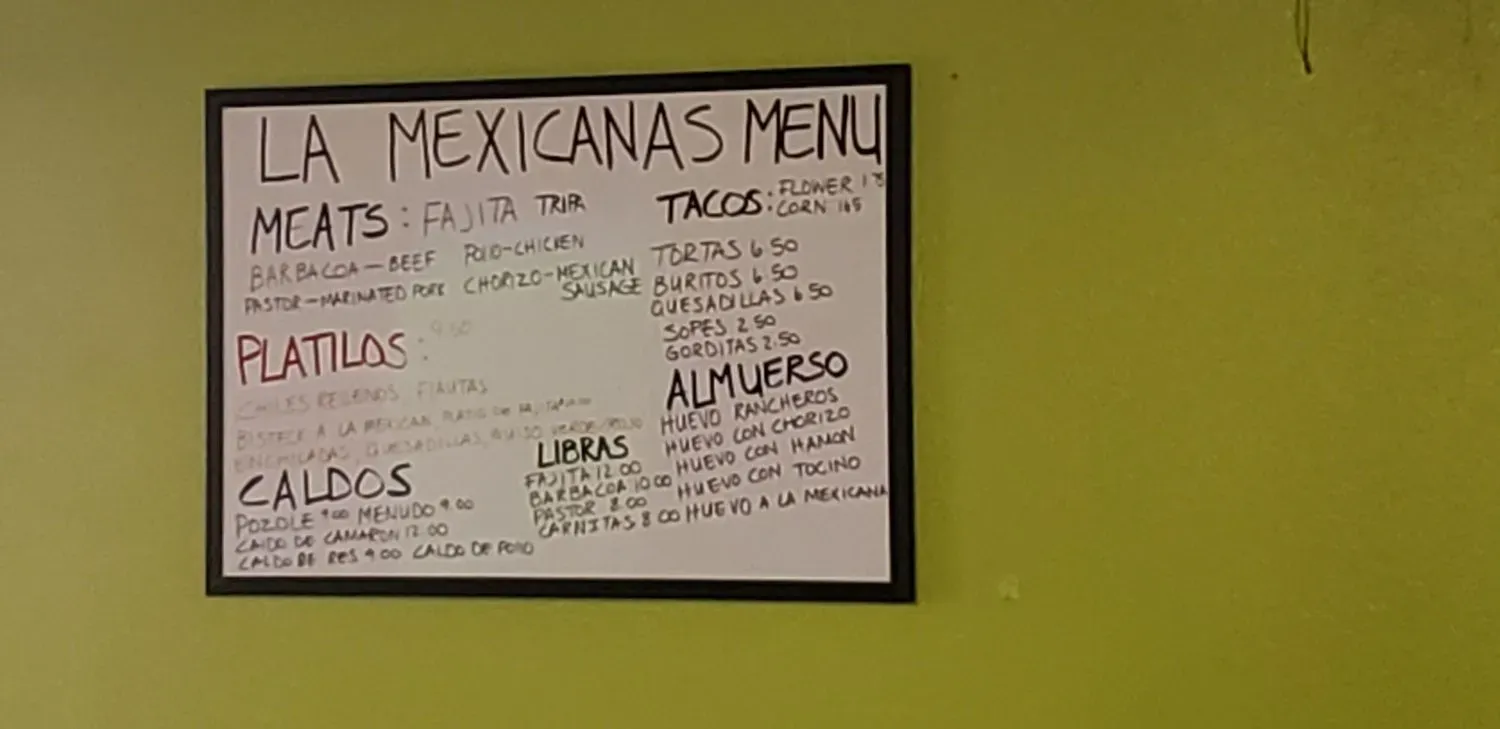 LA MEXICANAS MENU
MEATS: FAJITA TRIPA
BARBACOA-BEEF POLLO-CHICKEN
PASTOR-MARINATED PORK CHORIZO-MEXICAN
SAUSAGE
TACOS: FLOWER
CORN 165
TORTAS 6 50
BURITOS 6.50
QUESADILLAS 6 50
SOPES 2 50
GORDITAS 2.50
PLATILOS: 9.50
CHILES RELLENOS, FLAUTAS
BISTECK A LA MEXICAN, PLATO DE
ENCHILADAS, QUESADILLAS, GUISO VERDE/ROJO
CALDOS
POZOLE 9 00 MENUDO 9.00
CALDO DE CAMARON 12.00
CALDO DE RES 9.00 CALDO DE POLLO
LIBRAS
FAJITA 12.00
BARBACOA 10.00
PASTOR 8.00
CARNITAS 8.00
ALMUERSO
HUEVO RANCHEROS
HUEVO CON CHORIZO
HUEVO CON HAMON
HUEVO CON TOCINO
HUEVO A LA MEXICANA